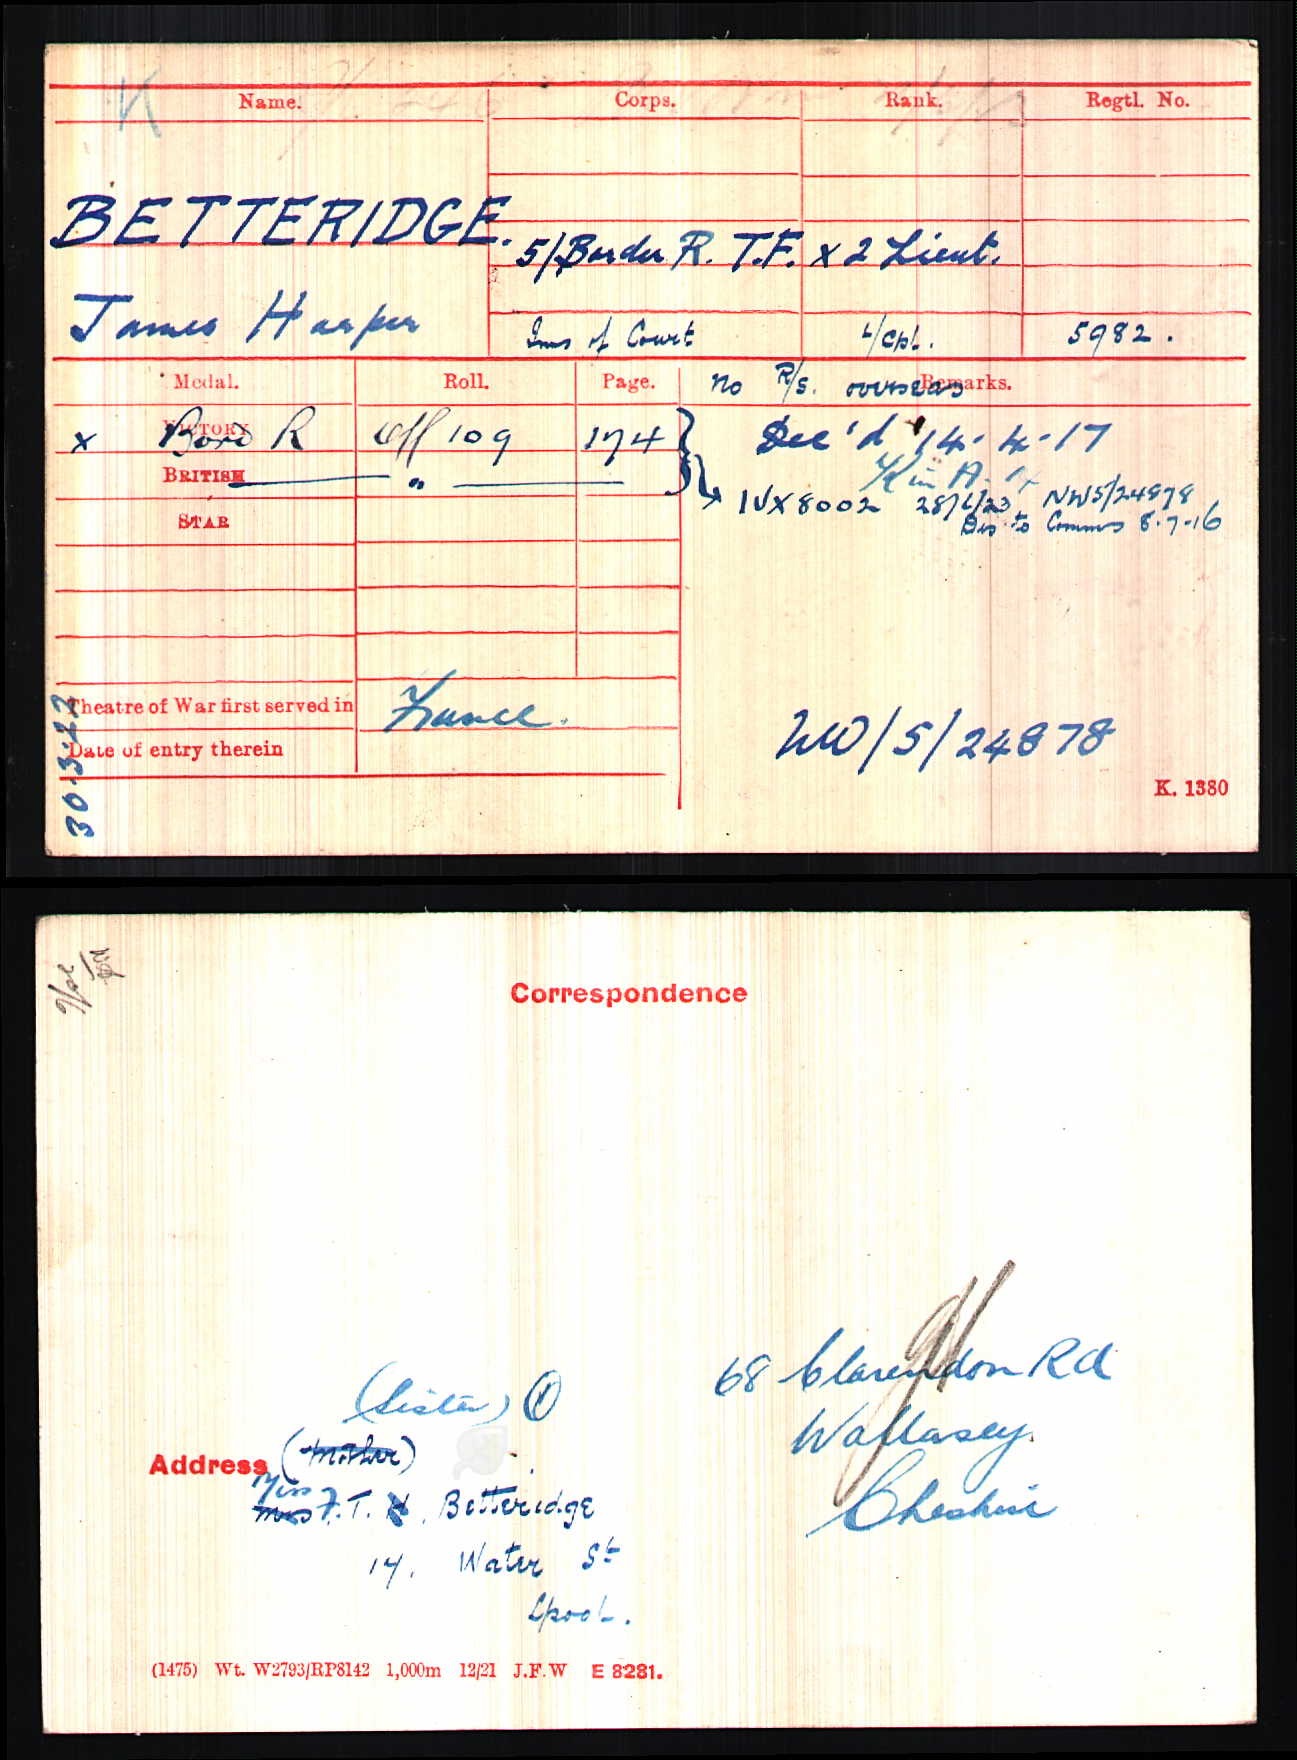 K
Name. Corps. Rank. Regtl. No.
BETTERIDGE. 5/Border R. T.F. x 2 Lieut.
James Harper Inns of Court L/Cpl. 5982.
Medal. Roll. Page. Remarks.
No R/S. overseas
x VICTORY Bord R Off 109 174 Dec'd 14-4-17
K in A.
BRITISH " IVX 8002 28/6/23 NW5/24878
STAR Dis to Comms 8.7.16
Theatre of War first served in France.
Date of entry therein
30.3.22
NW/5/24878
K. 1380
Correspondence
68 Clarendon Rd
Wallasey.
Cheshire
(Sister) 1
Address (Mother)
Miss
Mrs F. T. H. Betteridge
14. Water St
Lpool.
(1475) Wt. W2793/RP8142 1,000m 12/21 J.F.W E 8281.